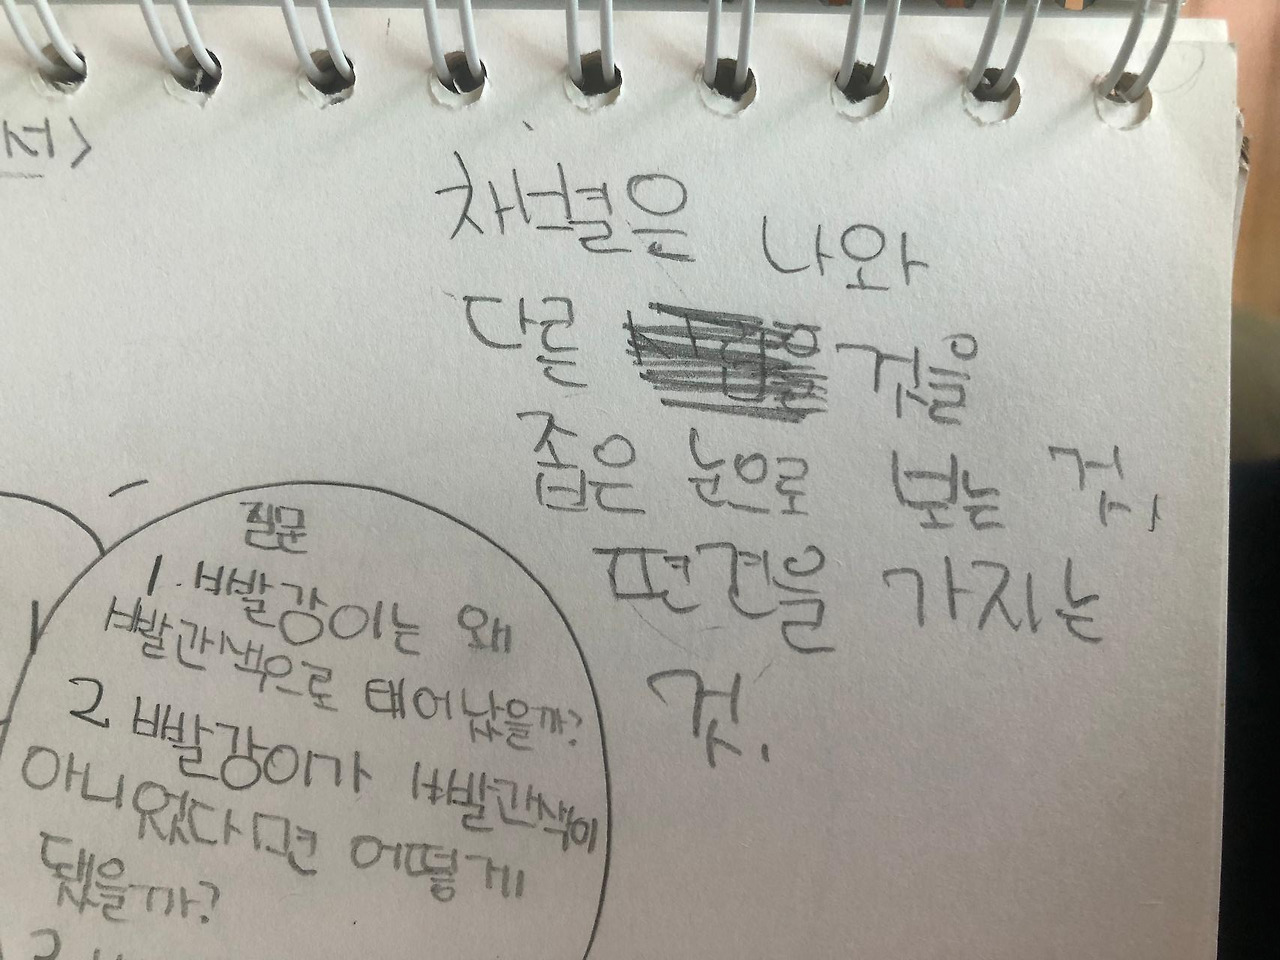 서>
차별은 나와
다른 것을
좁은 눈으로 보는 것,
편견을 가지는
것.
질문
1. 빨강이는 왜
빨간색으로 태어났을까?
2 빨강이가 빨간색이
아니었다면 어떻게
됐을까?
3